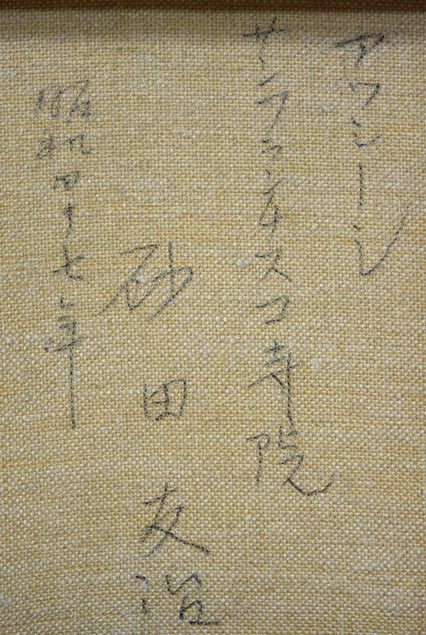 アッシージ
サンフランチェスコ寺院
砂田友治
昭和四十七年